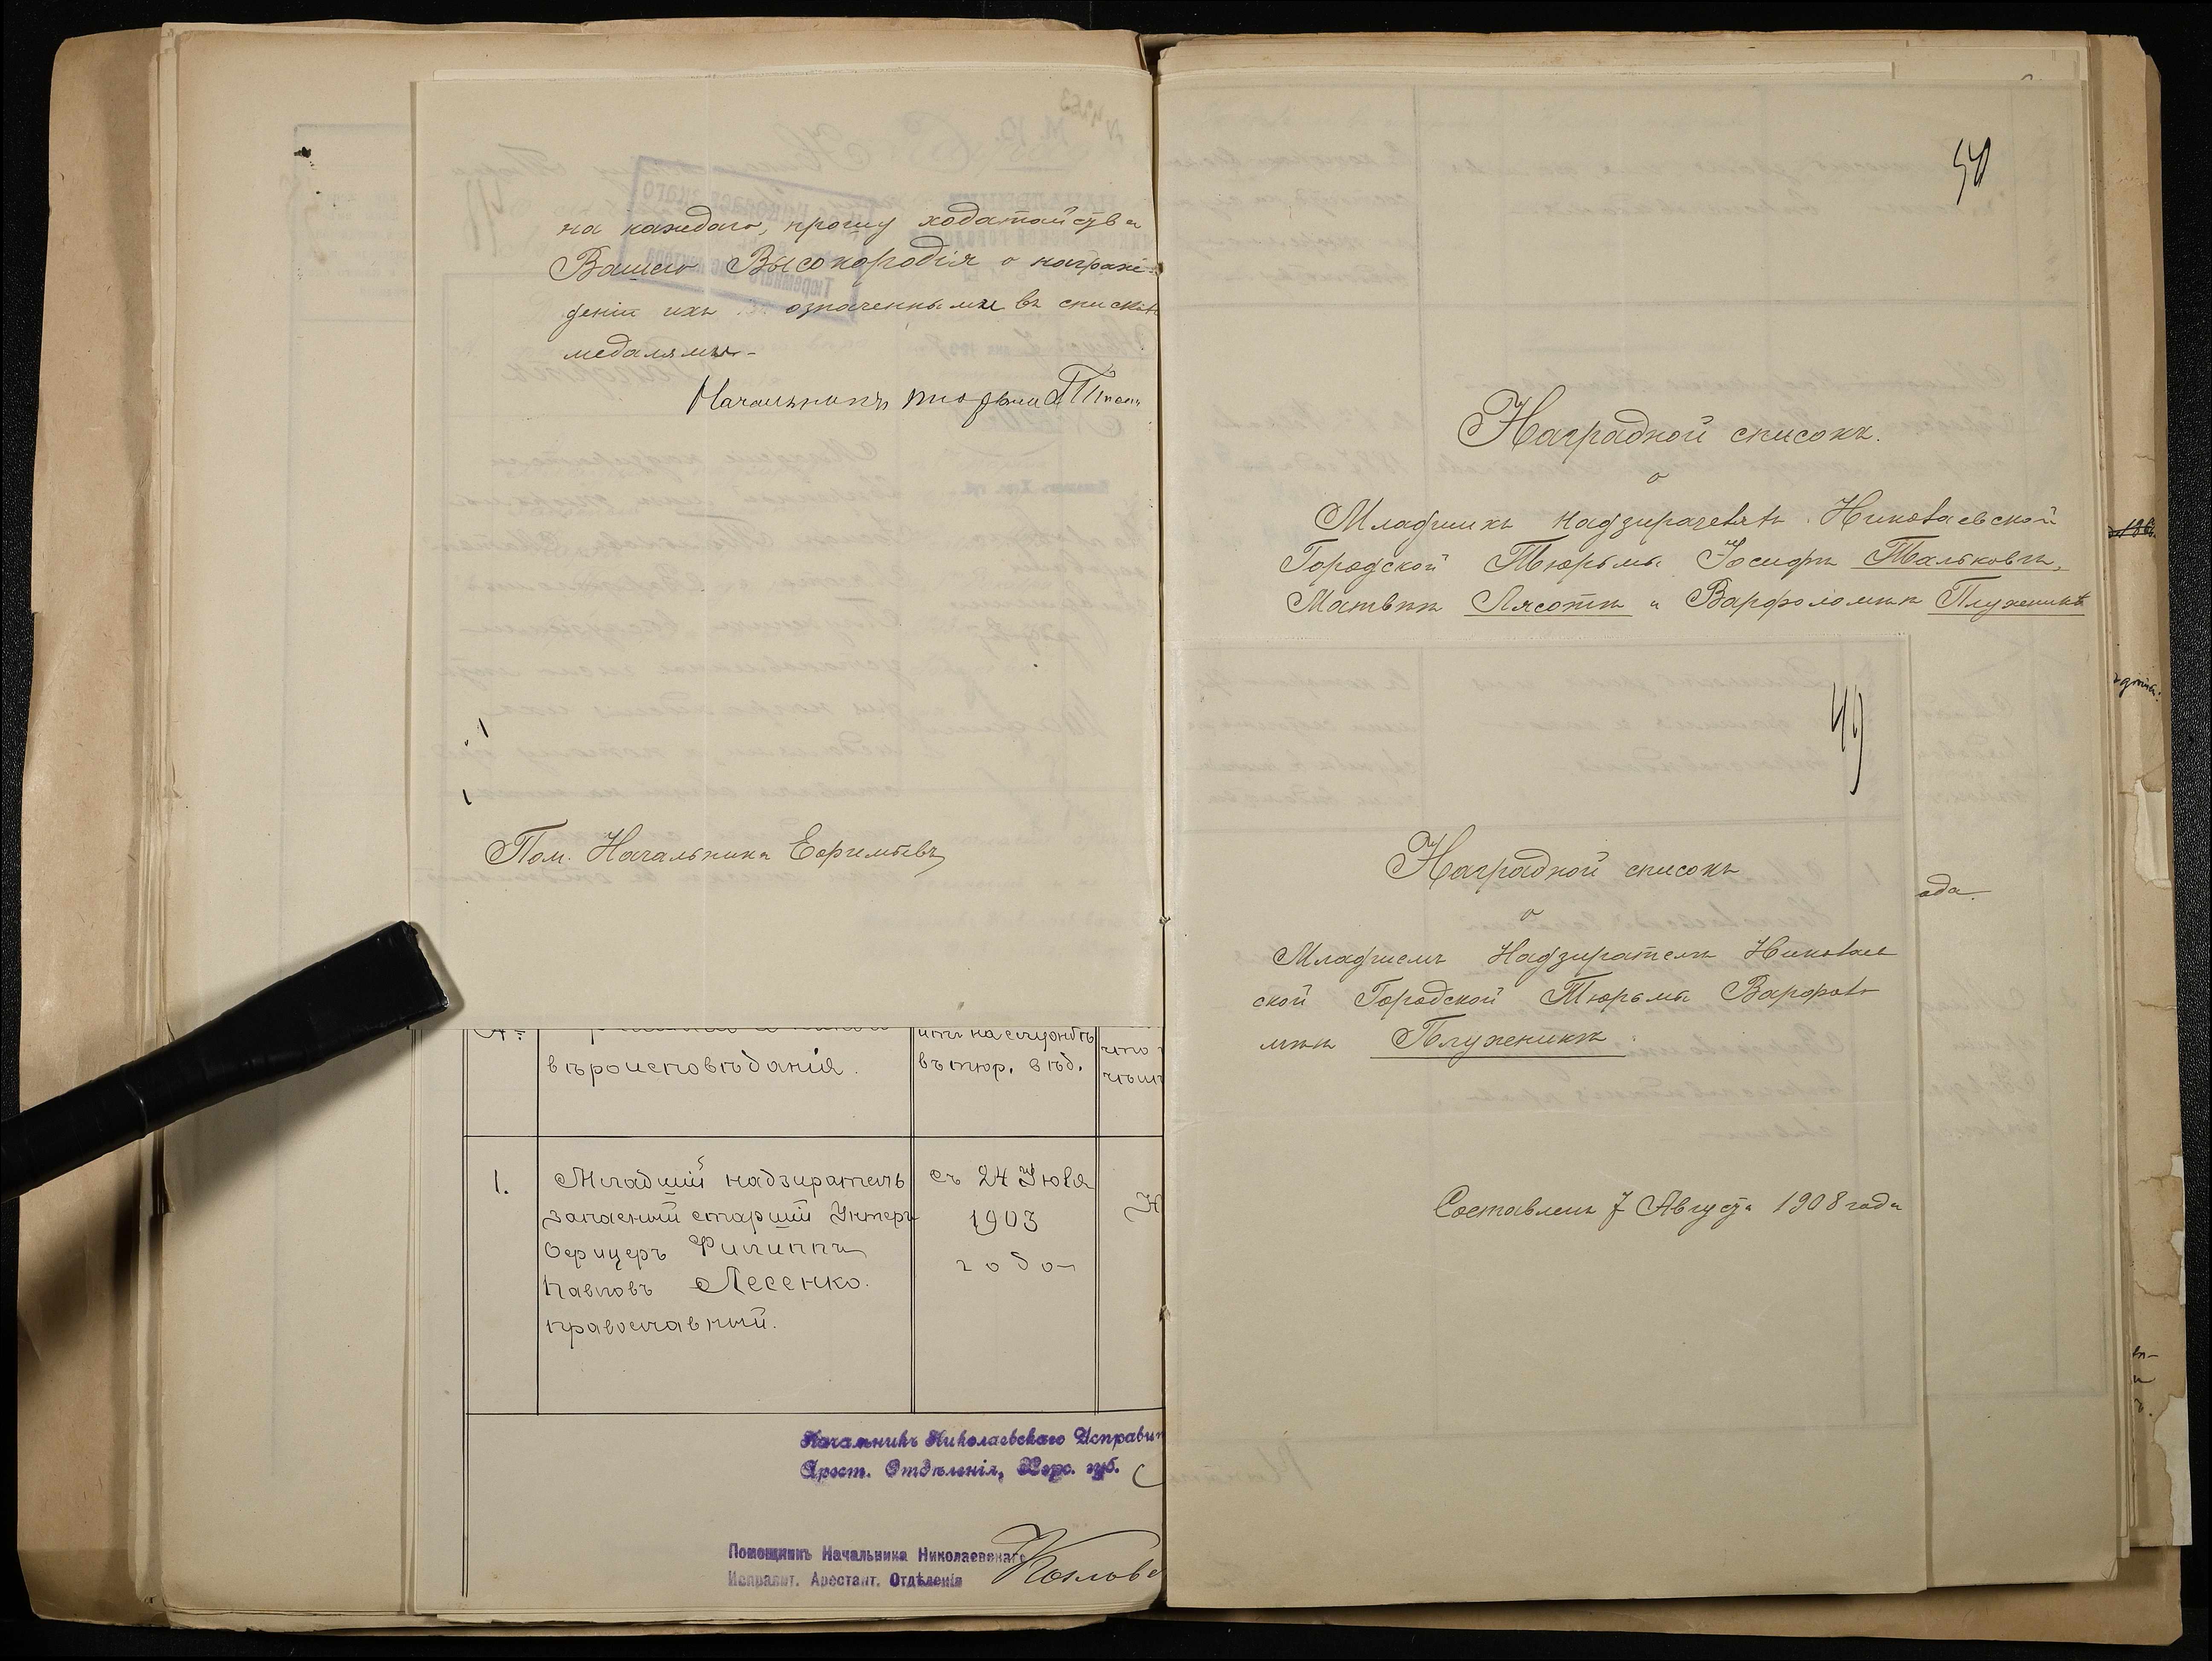 на каждаго, прошу ходатайства
Вашего Высокородія о награж-
деніи ихъ означенными въ спискѣ
медалями.-
Начальникъ тюрьмы
Пом. Начальника Ефимьевъ
вѣроисповѣданія.
итъ на службѣ
въ тюр. вѣд.
1.
Младшій надзиратель
запасный старшій Унтеръ
Офицеръ Филиппъ
Павловъ Лесенко.
православный.
съ 24 Июля
1903
года
Начальникъ Николаевскаго Исправит
Арест. Отдѣленія, Херс. губ.
Помощникъ Начальника Николаевскаго
Исправит. Арестант. Отдѣленія
50
Наградной списокъ.
о
Младшихъ надзирателяхъ Николаевской
Городской Тюрьмы Іосифѣ Тальковѣ,
Матвѣѣ Лясотѣ и Варфоломѣѣ Плуженикѣ
49
Наградной списокъ
о
Младшемъ Надзирателѣ Николаев
ской Городской Тюрьмы Варфоло
мѣѣ Плуженикѣ
ода.
Составленъ 7 Августа 1908 года